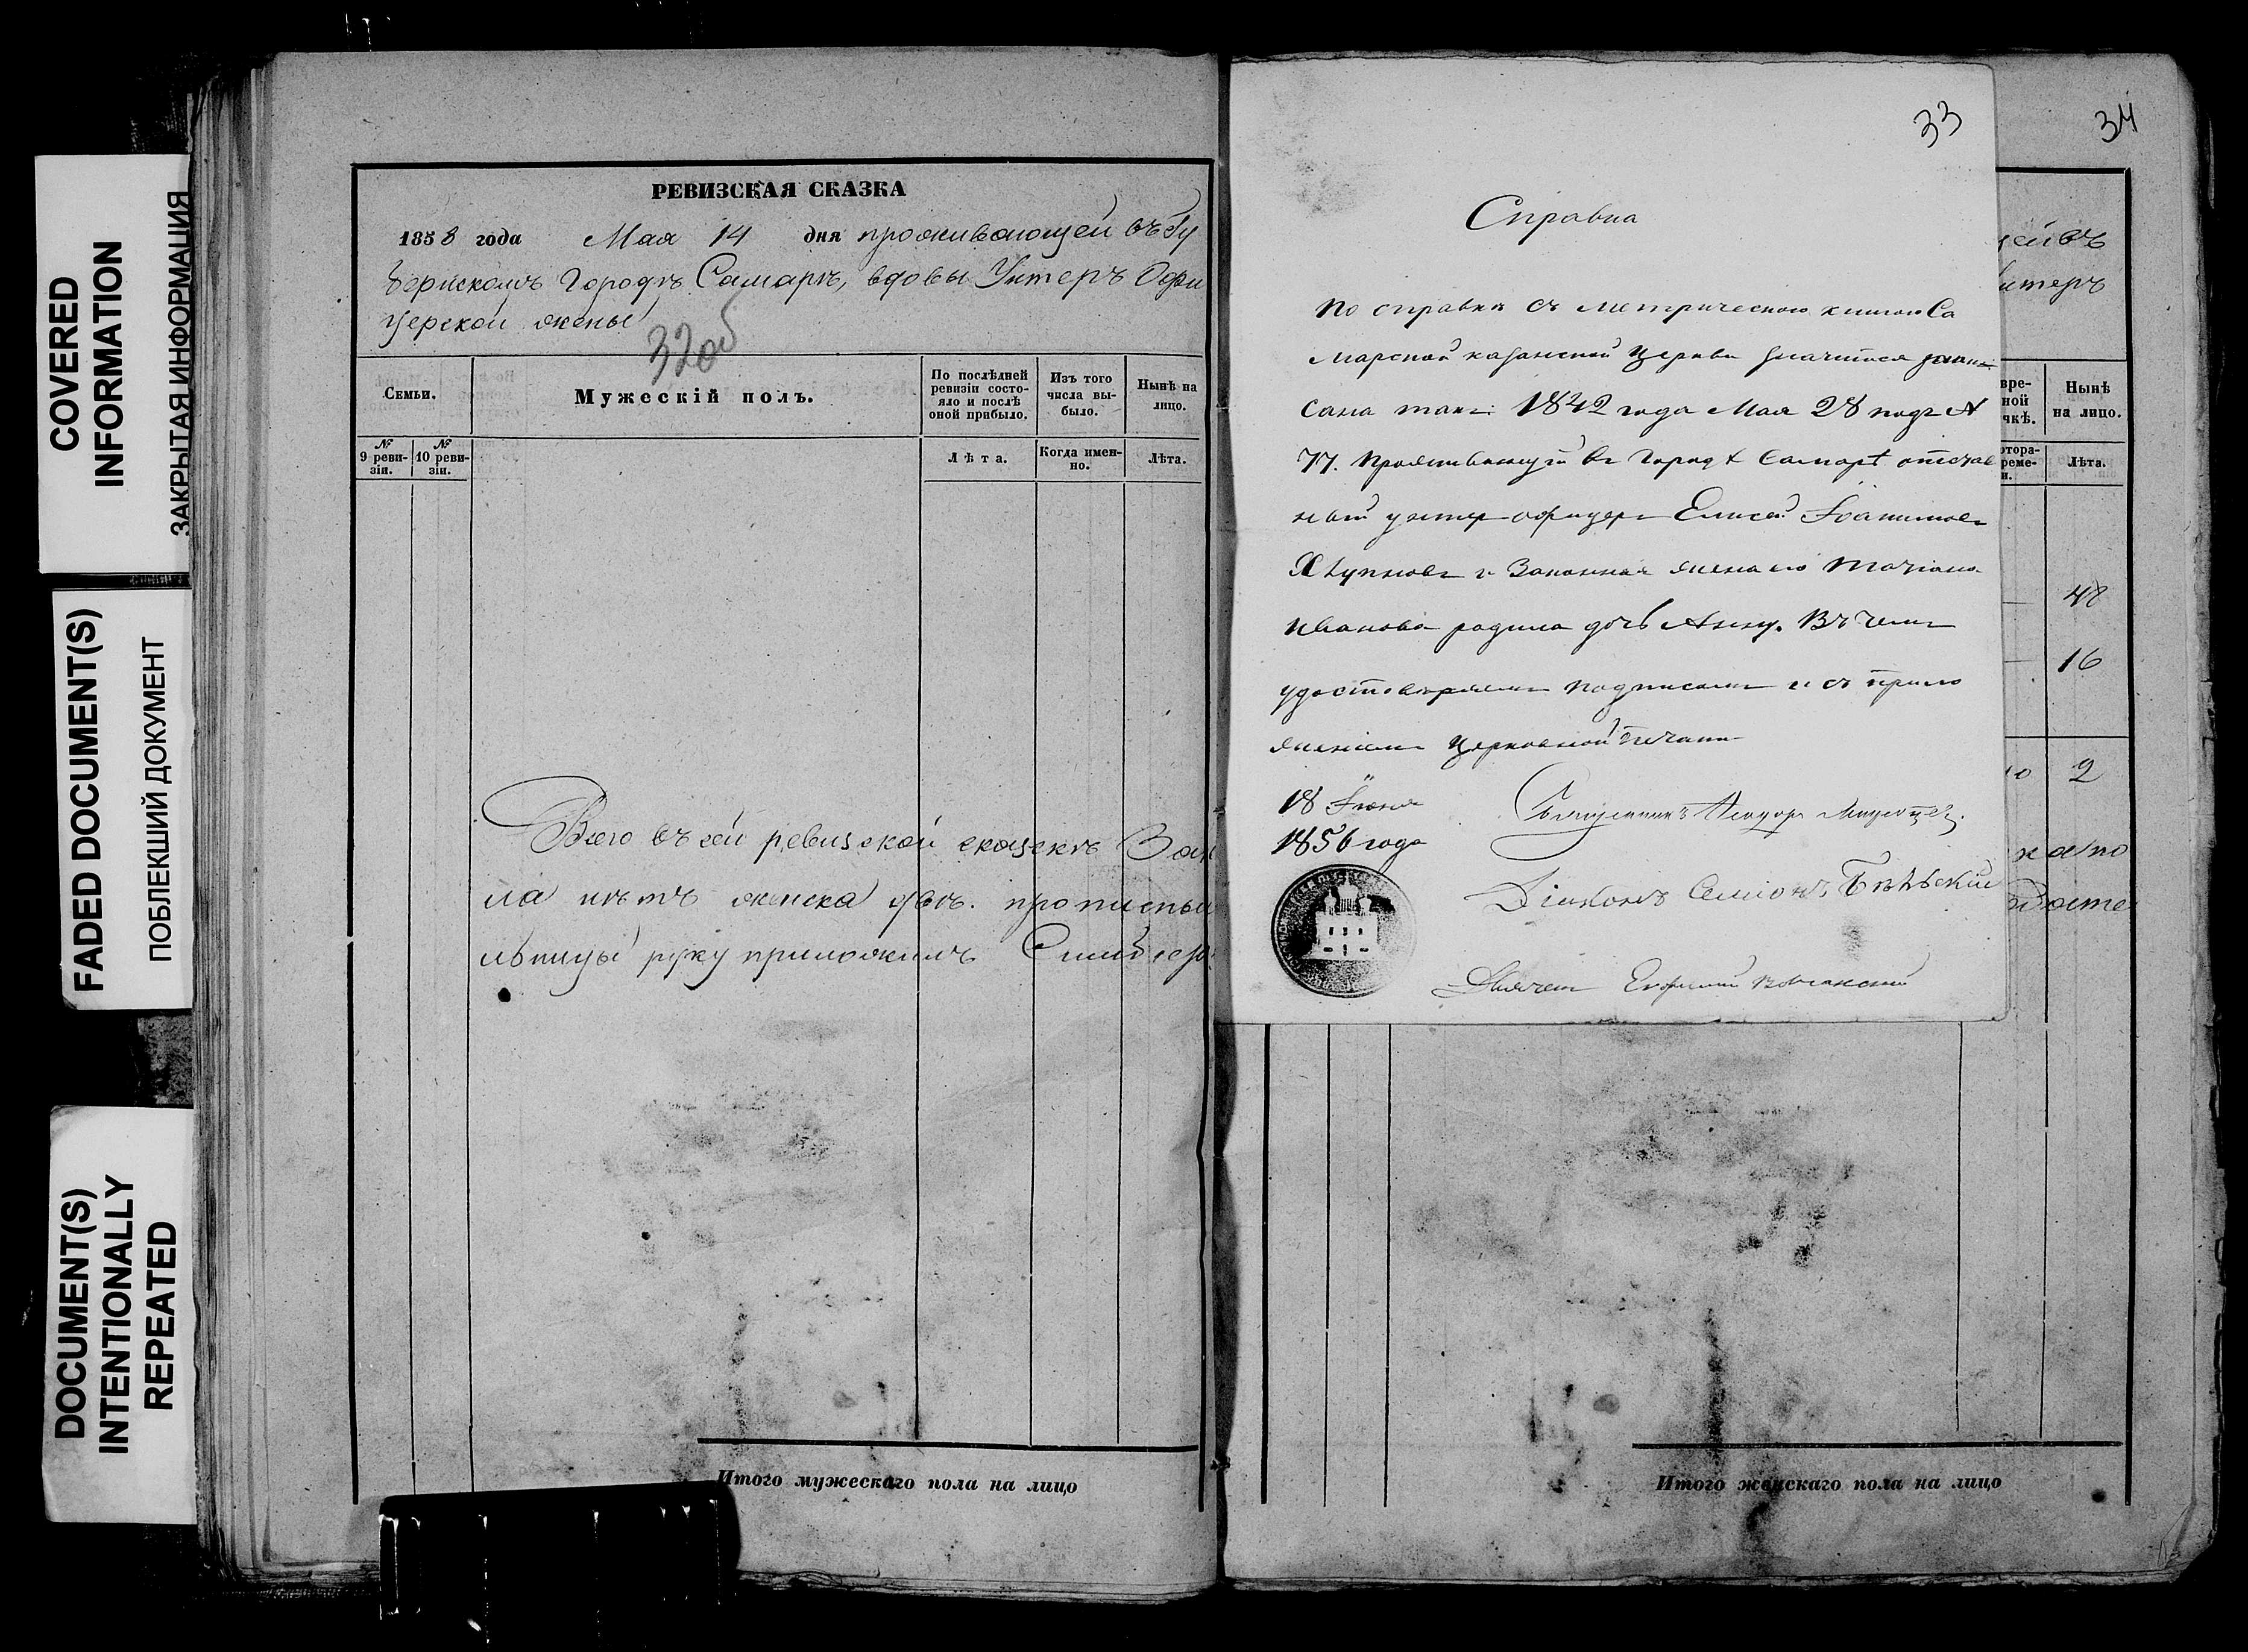 COVERED
INFORMATION
ЗАКРЫТАЯ ИНФОРМАЦИЯ
FADED DOCUMENT(S)
ПОБЛЕКШИЙ ДОКУМЕНТ
DOCUMENT(S)
INTENTIONALLY
REPEATED
РЕВИЗСКАЯ СКАЗКА
1858 года Мая 14 дня проживающей въ Гу
бернскомъ Городѣ Самарѣ, вдовы Унтеръ Офи
церской жены
32об
Семьи.
Мужескій полъ.
По послѣдней
ревизіи состо-
яло и послѣ
оной прибыло.
Изъ того
числа вы-
было.
Нынѣ на
лицо.
№
9 реви-
зіи.
№
10 реви-
зіи.
Лѣта.
Когда имен-
но.
Лѣта.
Всего въ сей ревизской сказкѣ
ла нѣтъ женска двѣ.
руку приложилъ
Итого мужескаго пола на лицо
33
Справка
По справкѣ съ метрическою книгою Са
марской казанской Церкви значится запи
сана такъ: 1842 года Мая 28 подъ №
77. Проживающій въ Городѣ Самарѣ отстав
ный унтер офицеръ Елисей
и Законная жена его Татіана
Иванова родила дочь Анну. Въ чемъ
удостовѣряемъ подписомъ и съ прило
женіемъ Церковной печати
18 Іюня
1856 года
Священникъ Ѳеодоръ
Діаконъ Симіонъ
Дьячекъ Евфимій
34
ей въ
нтеръ
вре-
ной
чкѣ.
Нынѣ
на лицо.
отора-
реме-
и.
Лѣта.
48
16
2
Итого женскаго пола на лицо